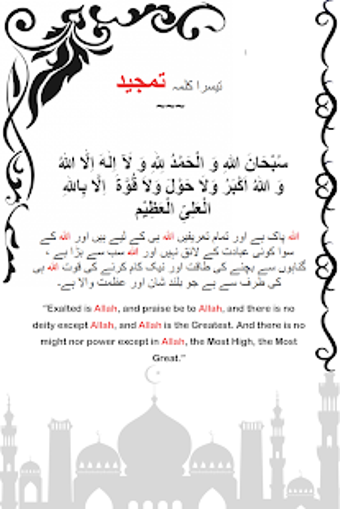 تیسرا کلمہ تمجید
~~~
سُبْحَانَ اللّٰهِ وَ الْحَمْدُ لِلّٰهِ وَ لَآ اِلٰهَ اِلَّا اللّٰهُ
وَ اللّٰهُ اَكْبَرُ وَلَا حَوْلَ وَلَا قُوَّةَ اِلَّا بِاللّٰهِ
الْعَلِیِّ الْعَظِیْمِ
اللہ پاک ہے اور تمام تعریفیں اللہ ہی کے لیے ہیں اور اللہ کے
سوا کوئی عبادت کے لائق نہیں اور اللہ سب سے بڑا ہے ،
گناہوں سے بچنے کی طاقت اور نیک کام کرنے کی قوت اللہ ہی
کی طرف سے ہے جو بلند شان اور عظمت والا ہے۔
"Exalted is Allah, and praise be to Allah, and there is no
deity except Allah, and Allah is the Greatest. And there is no
might nor power except in Allah, the Most High, the Most
Great."